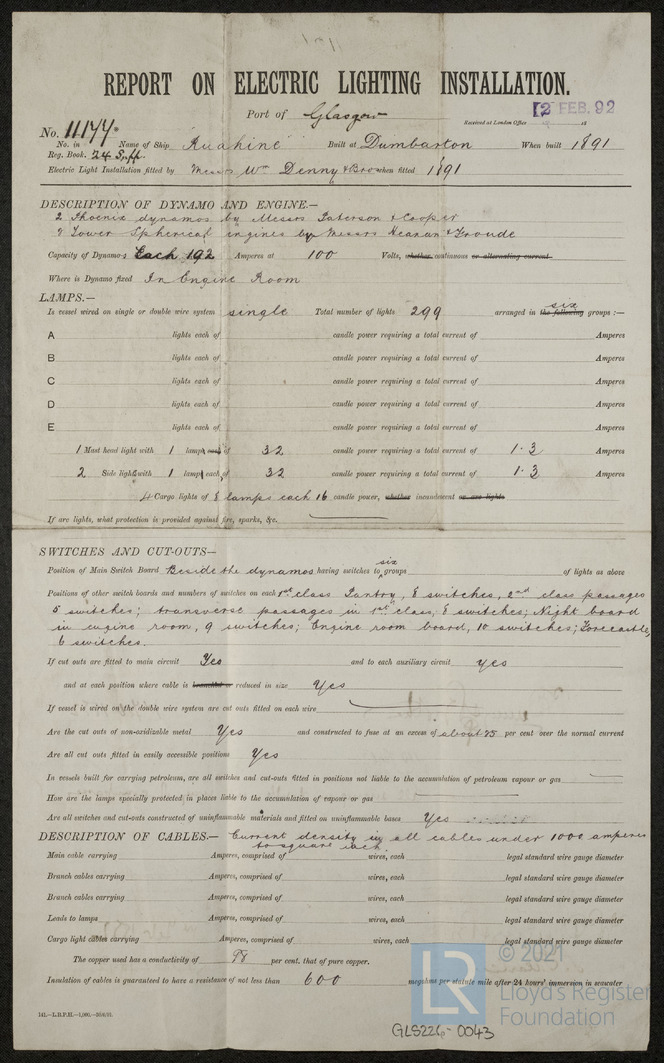 REPORT ON ELECTRIC LIGHTING INSTALLATION.
Port of Glasgow
Received at London Office 2 FEB. 92 18
No. 11177
No. in Reg. Book. 24 Suff. Name of Ship Ruahine Built at Dumbarton When built 1891
Electric Light Installation fitted by Messrs Wm Denny & Bros when fitted 1891
DESCRIPTION OF DYNAMO AND ENGINE.—
2 Phoenix dynamos by Messrs Paterson & Cooper
2 Tower Spherical engines by Messrs Heenan & Froude
Capacity of Dynamos Each 192 Amperes at 100 Volts, whether continuous or alternating current
Where is Dynamo fixed In Engine Room
LAMPS.—
Is vessel wired on single or double wire system single Total number of lights 299 arranged in the following six groups :—
A lights each of candle power requiring a total current of Amperes
B lights each of candle power requiring a total current of Amperes
C lights each of candle power requiring a total current of Amperes
D lights each of candle power requiring a total current of Amperes
E lights each of candle power requiring a total current of Amperes
1 Mast head light with 1 lamp each of 32 candle power requiring a total current of 1.3 Amperes
2 Side light with 1 lamp each of 32 candle power requiring a total current of 1.3 Amperes
4 Cargo lights of 8 lamps each 16 candle power, whether incandescent or arc lights
If arc lights, what protection is provided against fire, sparks, &c.
SWITCHES AND CUT-OUTS—
Position of Main Switch Board Beside the dynamos having switches to six groups of lights as above
Positions of other switch boards and numbers of switches on each 1st class Pantry, 8 switches, 2nd class passages
5 switches; transverse passages in 1st class, 8 switches; Night board
in engine room, 9 switches; Engine room board, 10 switches; Forecastle,
6 switches.
If cut outs are fitted to main circuit Yes and to each auxiliary circuit yes
and at each position where cable is branched or reduced in size Yes
If vessel is wired on the double wire system are cut outs fitted on each wire
Are the cut outs of non-oxidizable metal Yes and constructed to fuse at an excess of about 25 per cent over the normal current
Are all cut outs fitted in easily accessible positions Yes
In vessels built for carrying petroleum, are all switches and cut-outs fitted in positions not liable to the accumulation of petroleum vapour or gas
How are the lamps specially protected in places liable to the accumulation of vapour or gas
Are all switches and cut-outs constructed of uninflammable materials and fitted on uninflammable bases Yes
DESCRIPTION OF CABLES.— Current density in all cables under 1000 amperes
to square inch.
Main cable carrying Amperes, comprised of wires, each legal standard wire gauge diameter
Branch cables carrying Amperes, comprised of wires, each legal standard wire gauge diameter
Branch cables carrying Amperes, comprised of wires, each legal standard wire gauge diameter
Leads to lamps Amperes, comprised of wires, each legal standard wire gauge diameter
Cargo light cables carrying Amperes, comprised of wires, each legal standard wire gauge diameter
The copper used has a conductivity of 98 per cent. that of pure copper.
Insulation of cables is guaranteed to have a resistance of not less than 600 megohms per statute mile after 24 hours' immersion in seawater
© 2021
LR Lloyd's Register
Foundation
GLS226-0043